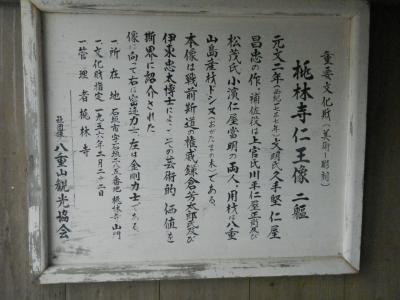 重要文化財(美術 彫刻)
桃林寺仁王像 二軀
元文二年(西紀一七三七年)久手堅仁屋
昌忠の作で補佐役は上官氏川平仁屋
松茂氏小濱仁屋當明の両人、用材は八重
山島産材ドシヌ(おがたまの木)である。
本像は戦前斯道の権威鎌倉芳太郎氏及び
伊東忠太博士によってその芸術的価値を
斯界に紹介された
像に向って右は密迹力士、左は金剛力士である。
一、所在地 石垣市字石垣二八五番地 桃林寺山門
一、文化財指定 一九五六年二月二十二日
一、管理者 桃林寺
八重山観光協会